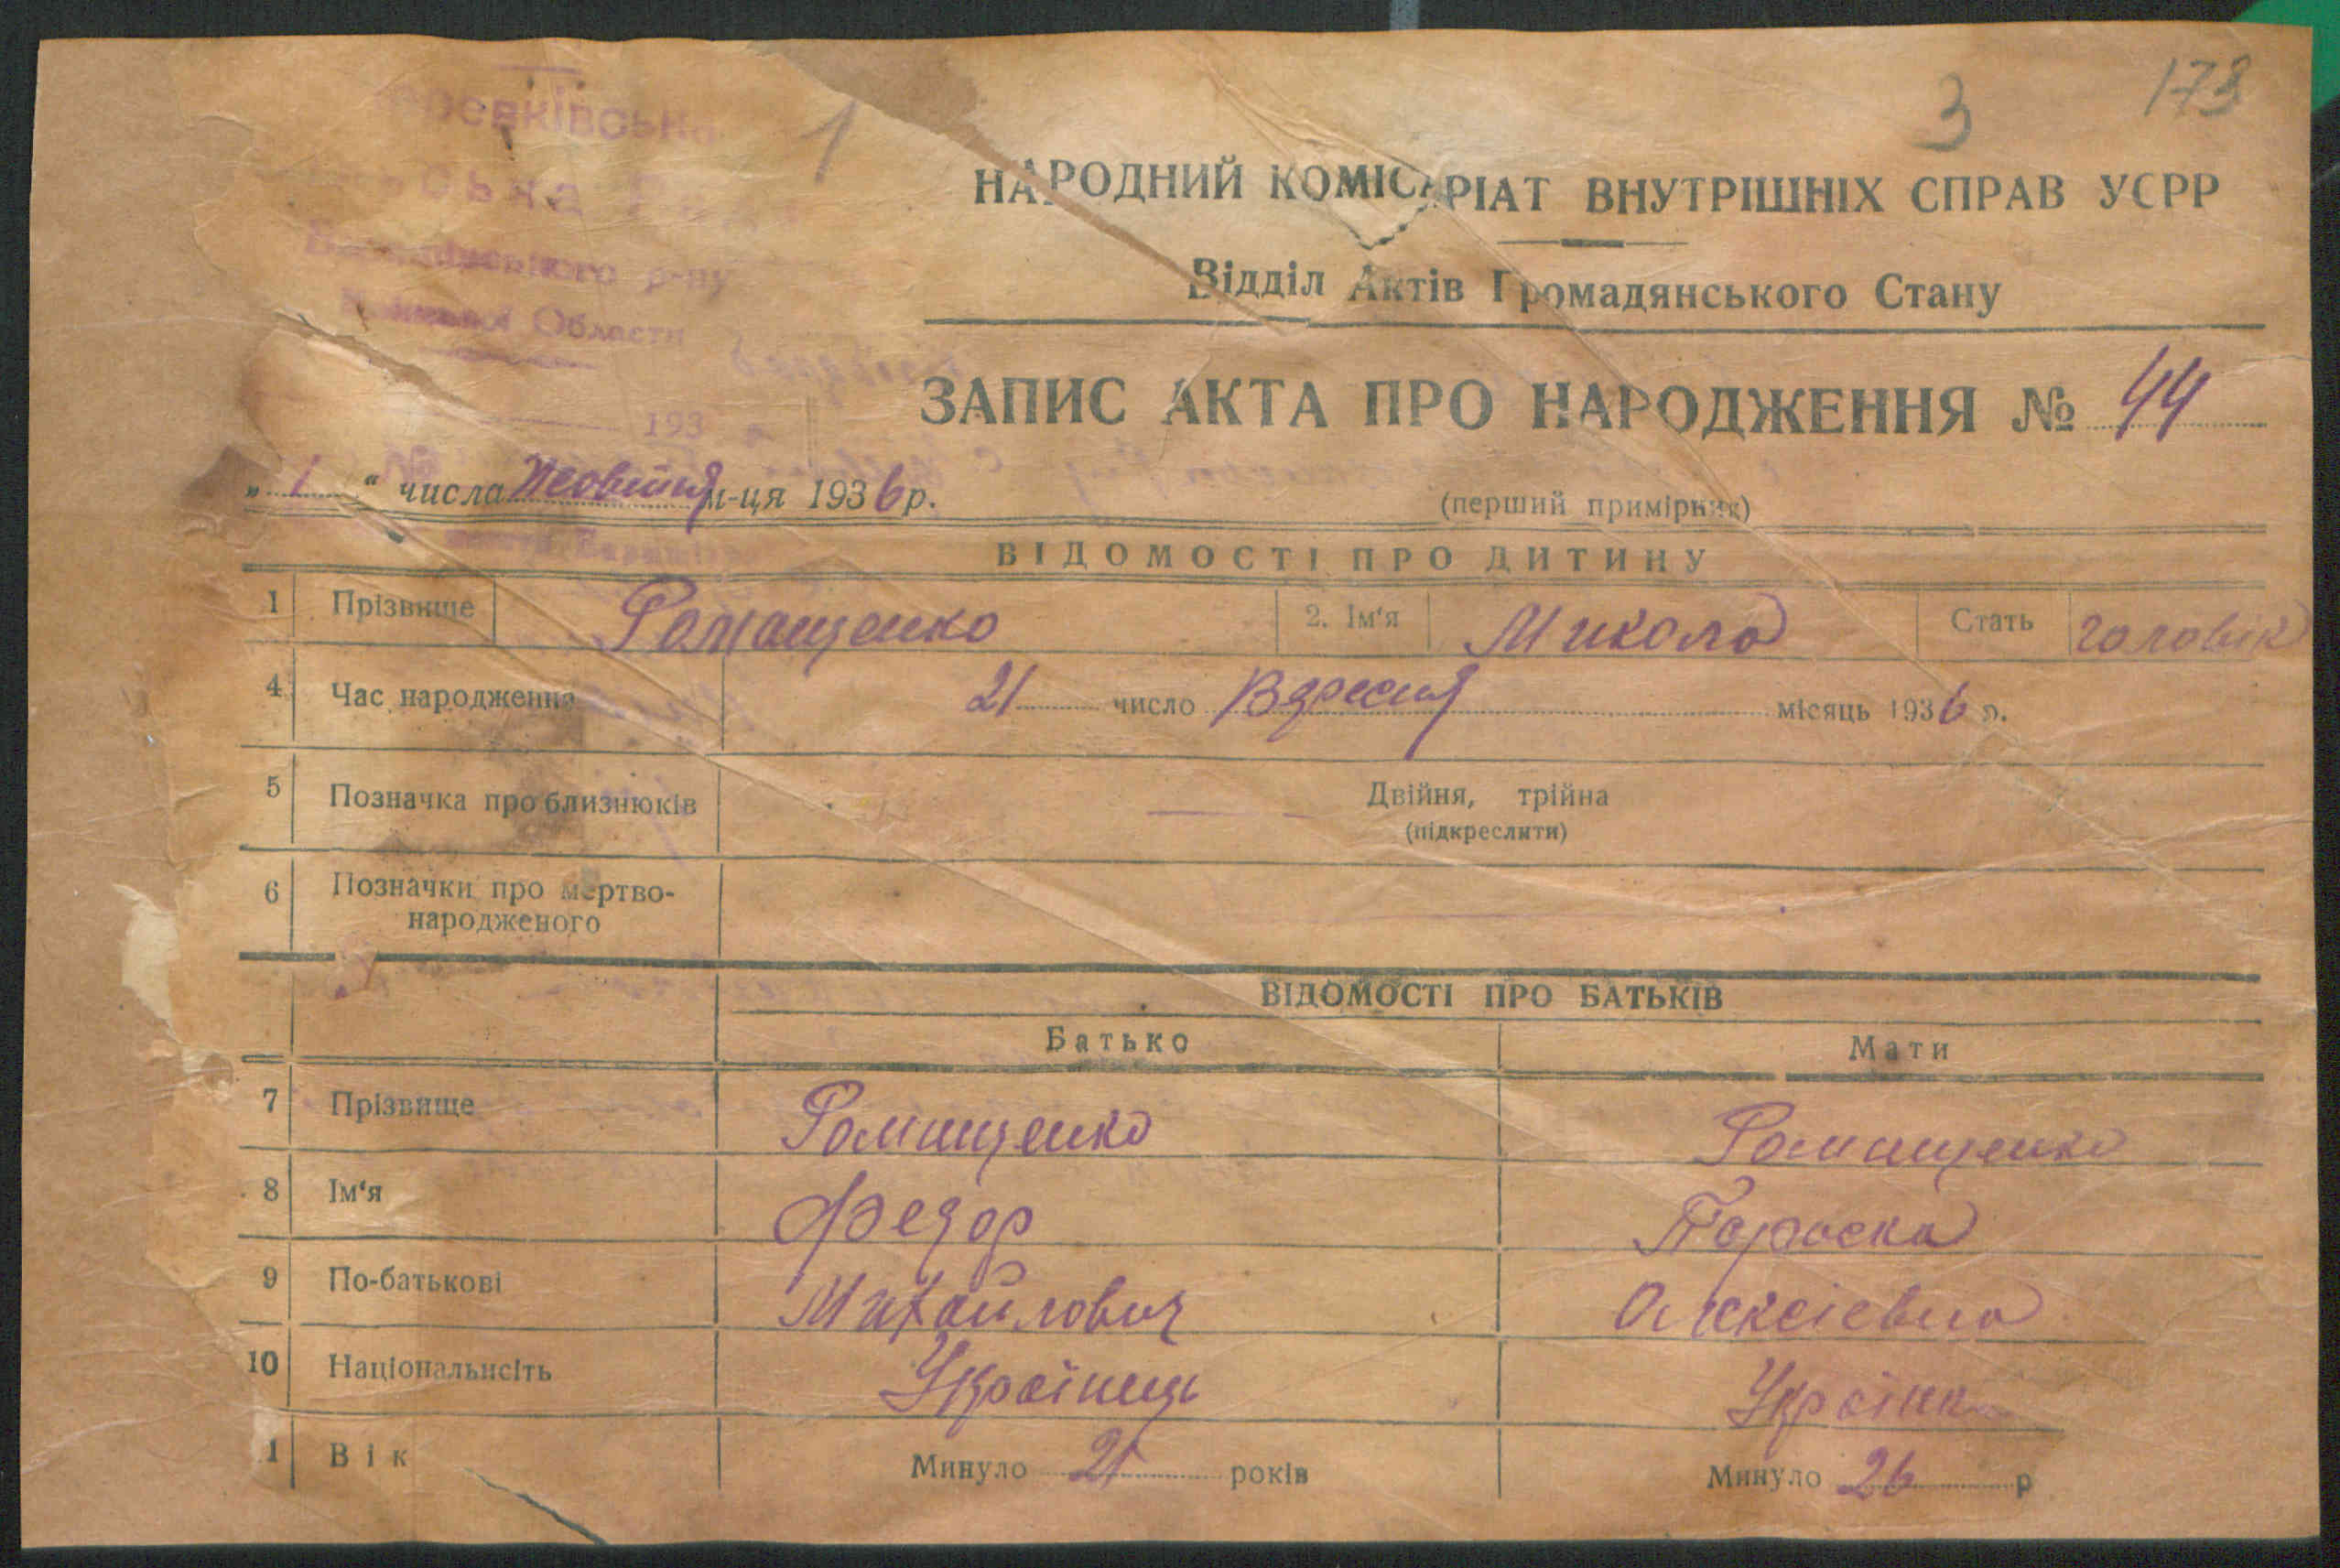 173
3
1
НАРОДНИЙ КОМІСАРІАТ ВНУТРІШНІХ СПРАВ УСРР
Відділ Актів Громадянського Стану
р-ну
Области
193
ЗАПИС АКТА ПРО НАРОДЖЕННЯ № 44
„ 1 “ числа Жовтня м-ця 1936 р.
(перший примірник)
ВІДОМОСТІ ПРО ДИТИНУ
1 Прізвище Ромащенко 2. Ім'я Микола Стать чоловік
4 Час народження 21 число Вересня місяць 1936 р.
5 Позначка про близнюків Двійня, трійна
(підкреслити)
6 Позначки про мертво-
народженого
ВІДОМОСТІ ПРО БАТЬКІВ
Батько Мати
7 Прізвище Ромащенко Ромащенко
8 Ім'я Федор Параска
9 По-батькові Михайлович Олексієвна
10 Національнсіть Українець Українка
1 Вік Минуло 21 років Минуло 26 р